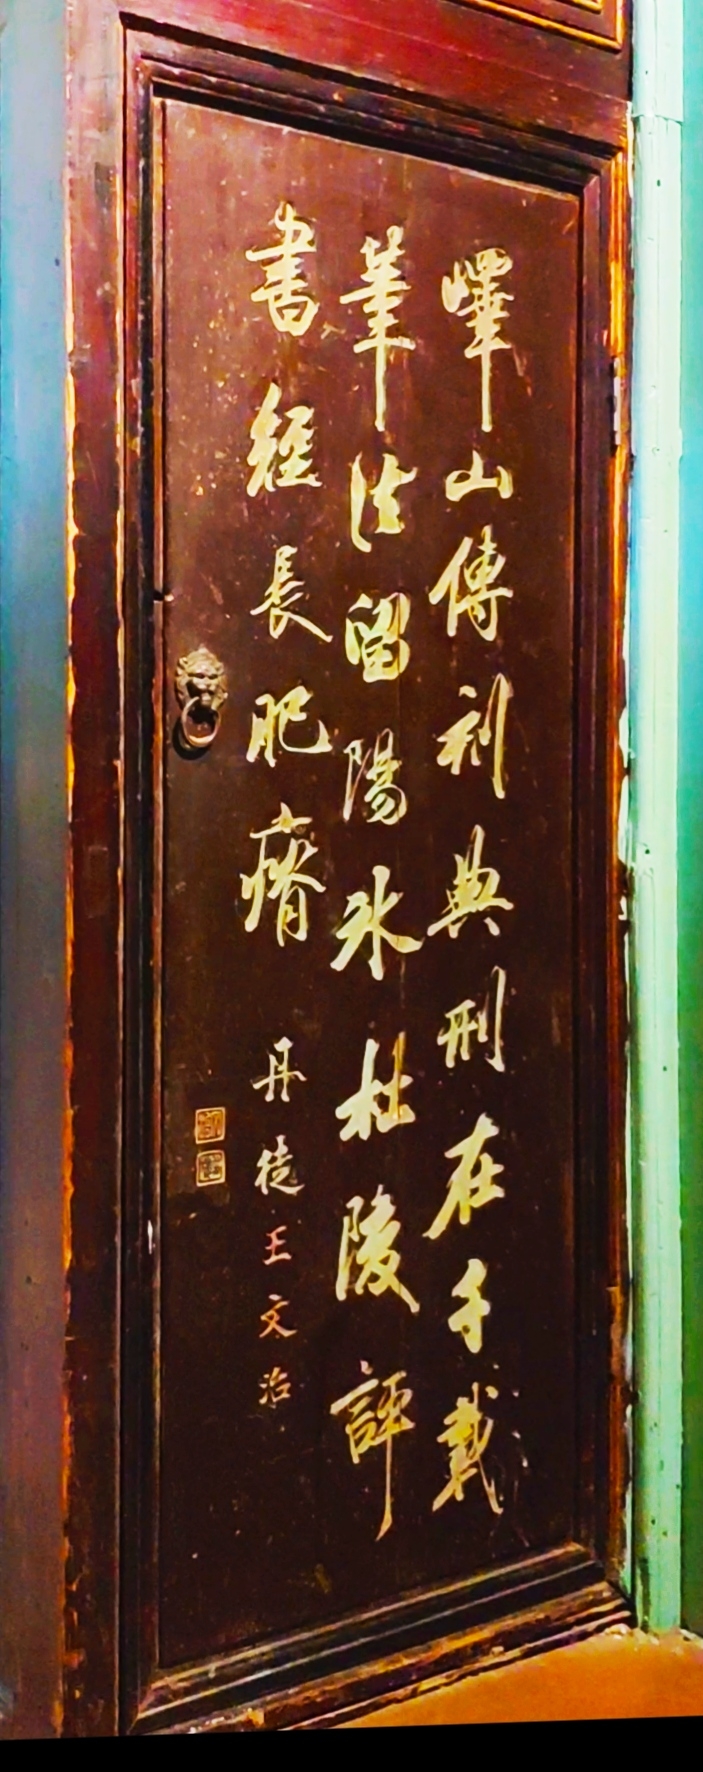 嶧山傳刻典刑在千載
筆法留陽氷杜陵評
書經長肥瘠
丹徒王文治